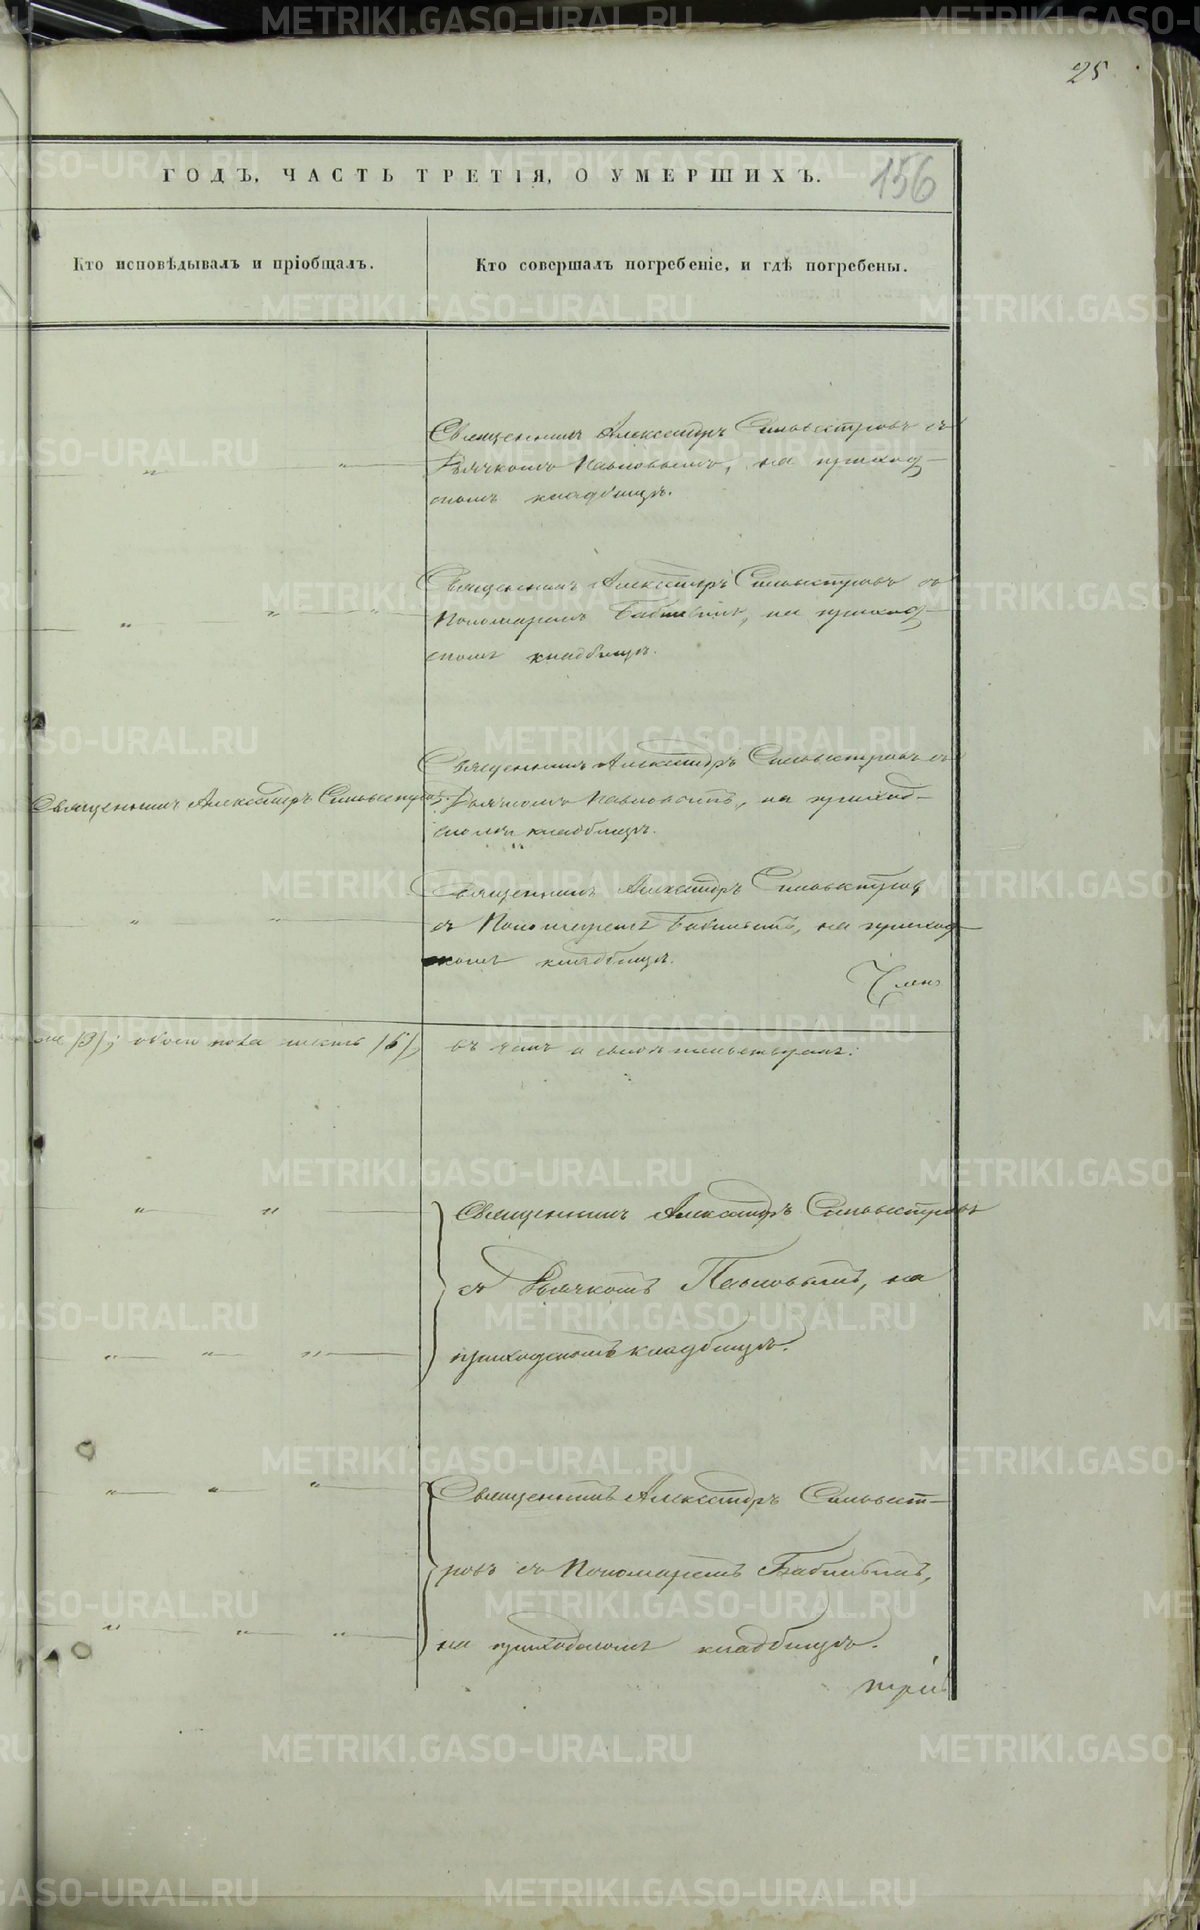 25
ГОДЪ, ЧАСТЬ ТРЕТІЯ, О УМЕРШИХЪ.
156
Кто исповѣдывалъ и пріобщалъ.
Кто совершалъ погребеніе, и гдѣ погребены.
Священникъ Александръ Сильвестровъ съ
Дьячкомъ Павловымъ, на приход-
скомъ кладбищѣ.
Священникъ Александръ Сильвестровъ съ
Пономаремъ Бабинымъ, на приход-
скомъ кладбищѣ.
Священникъ Александръ Сильвестровъ.
Священникъ Александръ Сильвестровъ съ
Дьячкомъ Павловымъ, на приход-
скомъ кладбищѣ.
Священникъ Александръ Сильвестровъ
съ Пономаремъ Бабинымъ, на приход-
скомъ кладбищѣ.
Член
/3/; обоего пола шесть /6/, въ чемъ и свидѣтельствуемъ:
Священникъ Александръ Сильвестровъ
съ Дьячкомъ Павловымъ, на
приходскомъ кладбищѣ.
Священникъ Александръ Сильвест-
ровъ съ Пономаремъ Бабинымъ,
на приходскомъ кладбищѣ.
METRIKI.GASO-URAL.RU